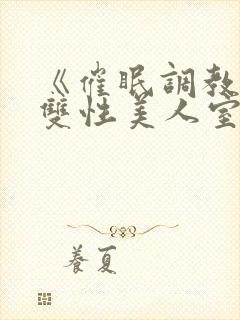 《催眠調教
雙性美人室
養夏